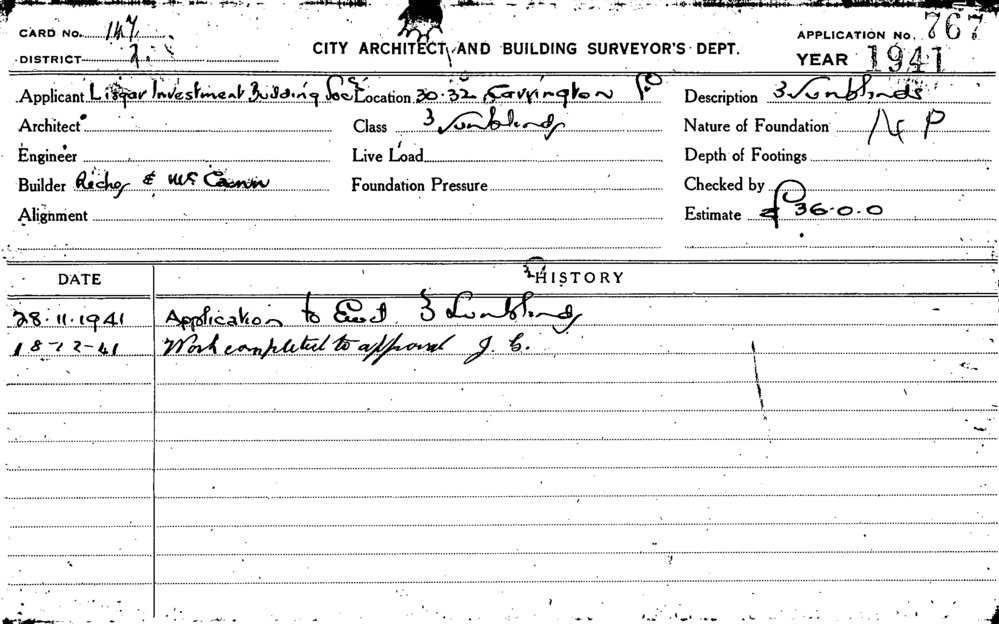 CARD No. 147.
DISTRICT 2.
CITY ARCHITECT AND BUILDING SURVEYOR'S DEPT.
APPLICATION No. 767
YEAR 1941
Applicant Lisgar Investment Building Socy Location 30-32 Carrington St Description 3 Sunblinds
Architect Class 3 Sunblinds Nature of Foundation
Engineer Live Load Depth of Footings
Builder Riches & McCann Foundation Pressure Checked by
Alignment Estimate £36.0.0
DATE HISTORY
28.11.1941 Application to Erect 3 Sunblinds
18-12-41 Work completed to approval J. C.